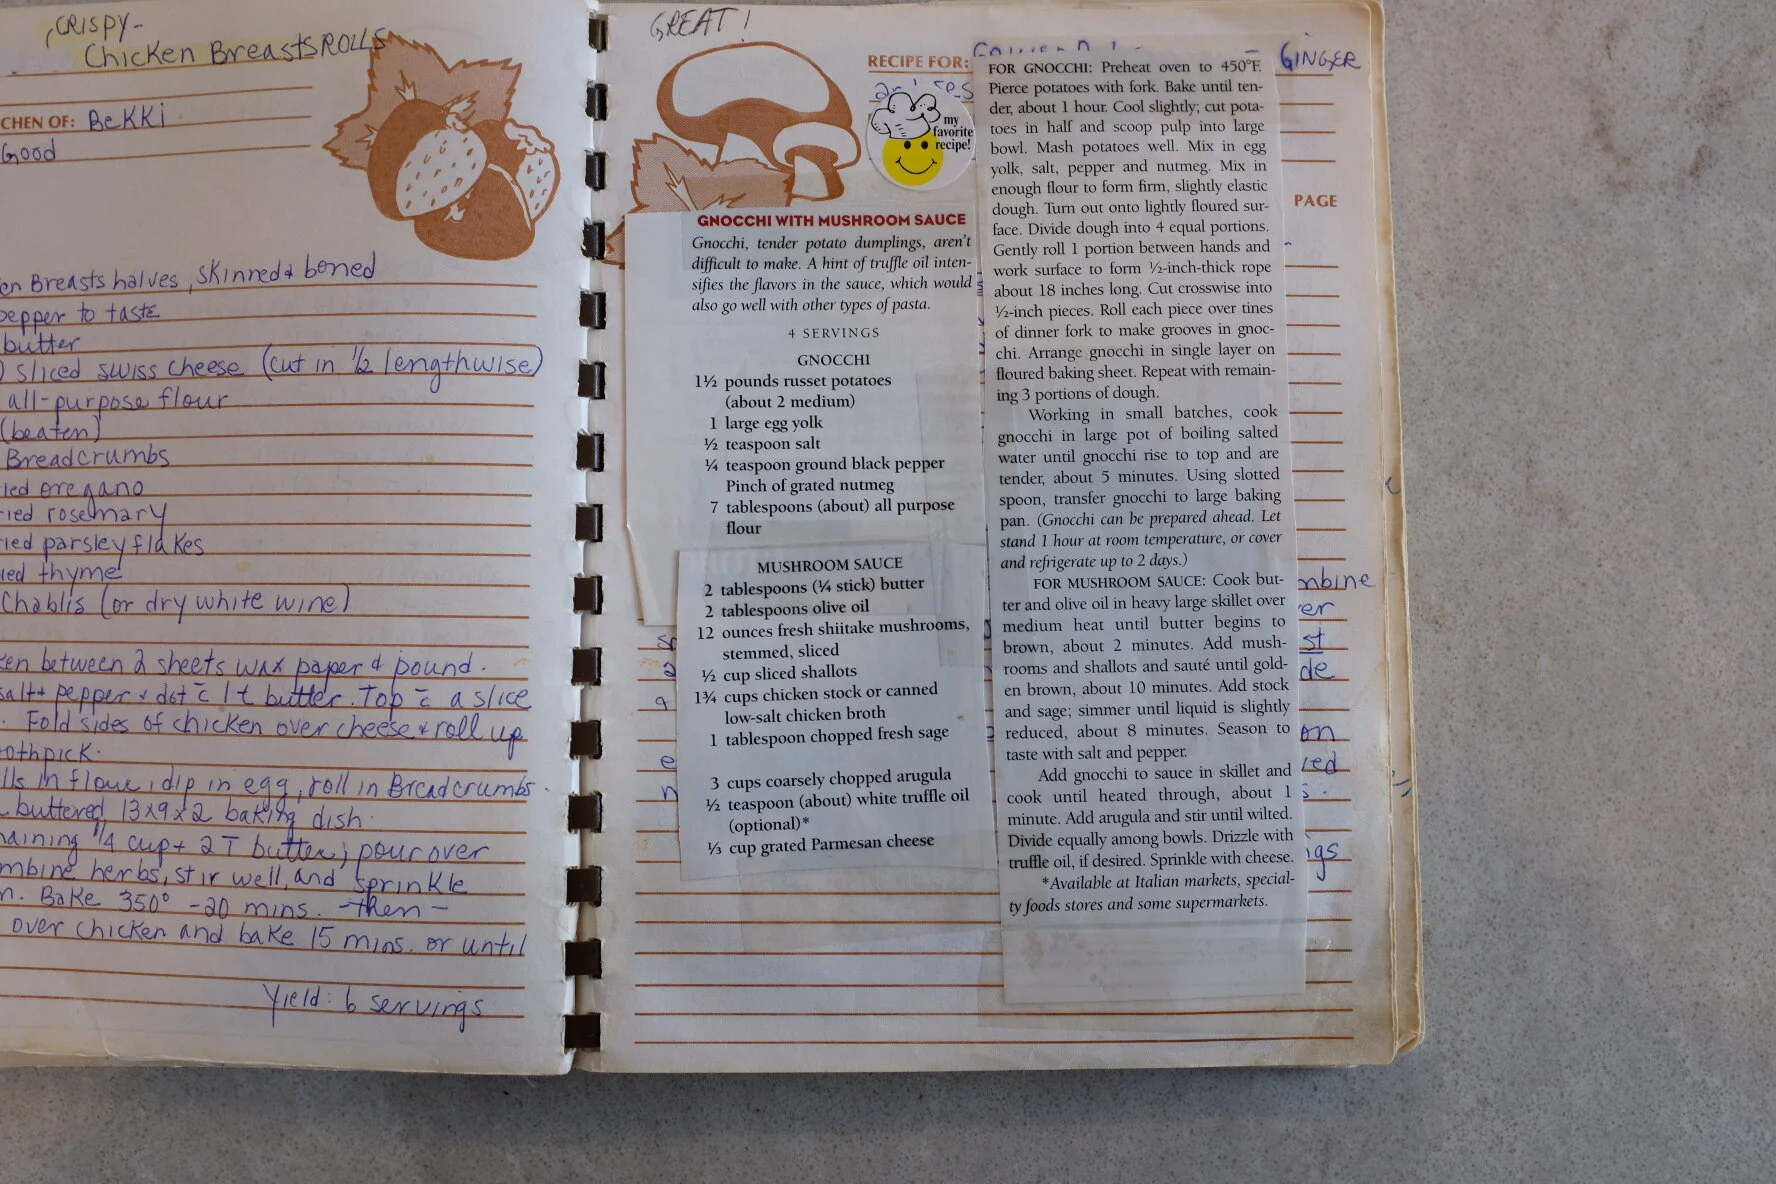 CRISPY-
Chicken Breasts ROLLS
CHEN OF: BeKKi
Good
en Breasts halves, skinned & boned
pepper to taste
butter
) sliced swiss cheese (cut in 1/2 lengthwise)
all-purpose flour
(beaten)
Breadcrumbs
ied oregano
ried rosemary
ried parsley flakes
ied thyme
Chablis (or dry white wine)
ken between 2 sheets wax paper & pound.
salt + pepper & dot c̄ 1 t butter. Top c̄ a slice
. Fold sides of chicken over cheese & roll up
othpick.
lls in flour, dip in egg, roll in Breadcrumbs.
buttered 13x9x2 baking dish.
maining 1/4 cup + 2 T butter; pour over
mbine herbs, stir well, and sprinkle
n. Bake 350° - 20 mins. -then-
over chicken and bake 15 mins. or until
Yield: 6 servings
GREAT!
RECIPE FOR:
GINGER
my
favorite
recipe!
PAGE
GNOCCHI WITH MUSHROOM SAUCE
Gnocchi, tender potato dumplings, aren't
difficult to make. A hint of truffle oil inten-
sifies the flavors in the sauce, which would
also go well with other types of pasta.
4 SERVINGS
GNOCCHI
1½ pounds russet potatoes
(about 2 medium)
1 large egg yolk
½ teaspoon salt
¼ teaspoon ground black pepper
Pinch of grated nutmeg
7 tablespoons (about) all purpose
flour
MUSHROOM SAUCE
2 tablespoons (¼ stick) butter
2 tablespoons olive oil
12 ounces fresh shiitake mushrooms,
stemmed, sliced
½ cup sliced shallots
1¾ cups chicken stock or canned
low-salt chicken broth
1 tablespoon chopped fresh sage
3 cups coarsely chopped arugula
½ teaspoon (about) white truffle oil
(optional)*
⅓ cup grated Parmesan cheese
FOR GNOCCHI: Preheat oven to 450°F.
Pierce potatoes with fork. Bake until ten-
der, about 1 hour. Cool slightly; cut pota-
toes in half and scoop pulp into large
bowl. Mash potatoes well. Mix in egg
yolk, salt, pepper and nutmeg. Mix in
enough flour to form firm, slightly elastic
dough. Turn out onto lightly floured sur-
face. Divide dough into 4 equal portions.
Gently roll 1 portion between hands and
work surface to form ½-inch-thick rope
about 18 inches long. Cut crosswise into
½-inch pieces. Roll each piece over tines
of dinner fork to make grooves in gnoc-
chi. Arrange gnocchi in single layer on
floured baking sheet. Repeat with remain-
ing 3 portions of dough.
Working in small batches, cook
gnocchi in large pot of boiling salted
water until gnocchi rise to top and are
tender, about 5 minutes. Using slotted
spoon, transfer gnocchi to large baking
pan. (Gnocchi can be prepared ahead. Let
stand 1 hour at room temperature, or cover
and refrigerate up to 2 days.)
FOR MUSHROOM SAUCE: Cook but-
ter and olive oil in heavy large skillet over
medium heat until butter begins to
brown, about 2 minutes. Add mush-
rooms and shallots and sauté until gold-
en brown, about 10 minutes. Add stock
and sage; simmer until liquid is slightly
reduced, about 8 minutes. Season to
taste with salt and pepper.
Add gnocchi to sauce in skillet and
cook until heated through, about 1
minute. Add arugula and stir until wilted.
Divide equally among bowls. Drizzle with
truffle oil, if desired. Sprinkle with cheese.
*Available at Italian markets, special-
ty foods stores and some supermarkets.
mbine
er
st
de
on
ied
s.
ngs